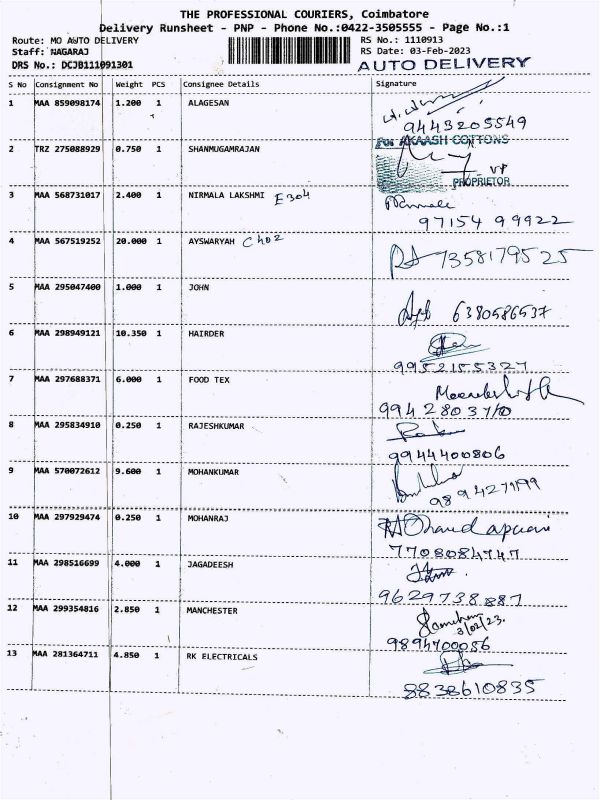 THE PROFESSIONAL COURIERS, Coimbatore
Delivery Runsheet - PNP - Phone No.:0422-3505555 - Page No.:1
Route: MO AUTO DELIVERY RS No.: 1110913
Staff: NAGARAJ RS Date: 03-Feb-2023
DRS No.: DCJB111091301 AUTO DELIVERY
S No Consignment No Weight PCS Consignee Details Signature
1 MAA 859098174 1.200 1 ALAGESAN
9443205549
For AKAASH COTTONS
2 TRZ 275088929 0.750 1 SHANMUGAMRAJAN
PROPRIETOR
3 MAA 568731017 2.400 1 NIRMALA LAKSHMI E304
97154 99922
4 MAA 567519252 20.000 1 AYSWARYAH C402
7358179525
5 MAA 295047400 1.000 1 JOHN
6380586537
6 MAA 298949121 10.350 1 HAIRDER
9952155327
7 MAA 297688371 6.000 1 FOOD TEX
8 MAA 295834910 0.250 1 RAJESHKUMAR
9944400806
9 MAA 570072612 9.600 1 MOHANKUMAR
9894271199
10 MAA 297929474 0.250 1 MOHANRAJ
7708084747
11 MAA 298516699 4.000 1 JAGADEESH
9629738887
12 MAA 299354816 2.850 1 MANCHESTER
3/02/23.
9894700056
13 MAA 281364711 4.850 1 RK ELECTRICALS
8838610835